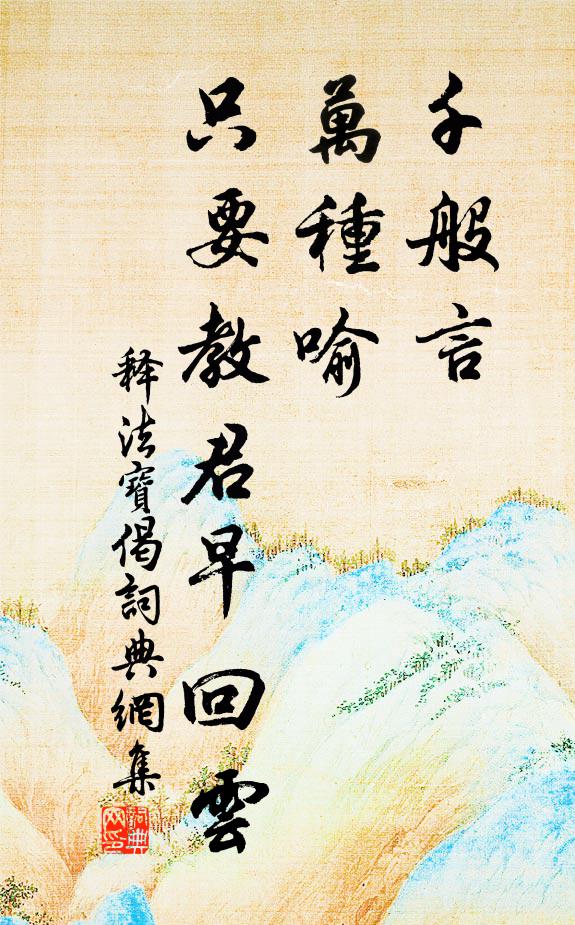 千般言
萬種喻
只要教君早回雲
释法寶偈詞典網集
詞典网印